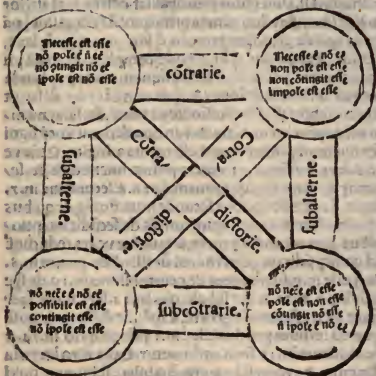 Necesse est esse
nō pole ē n̄ eē
nō ꝯtingit nō eē
ipole est nō esse
cōtrarie.
Necesse ē nō eē
non pole est esse
non cōtingit esse
impole est esse
subalterne.
Cōtra/
dictorie.
Cōtra/
dictorie.
subalterne.
nō necē ē nō eē
possibile est esse
contingit esse
nō ipole est esse
subcōtrarie.
nō necē est esse
pole est non esse
cōtingit nō esse
n̄ ipole ē nō eē